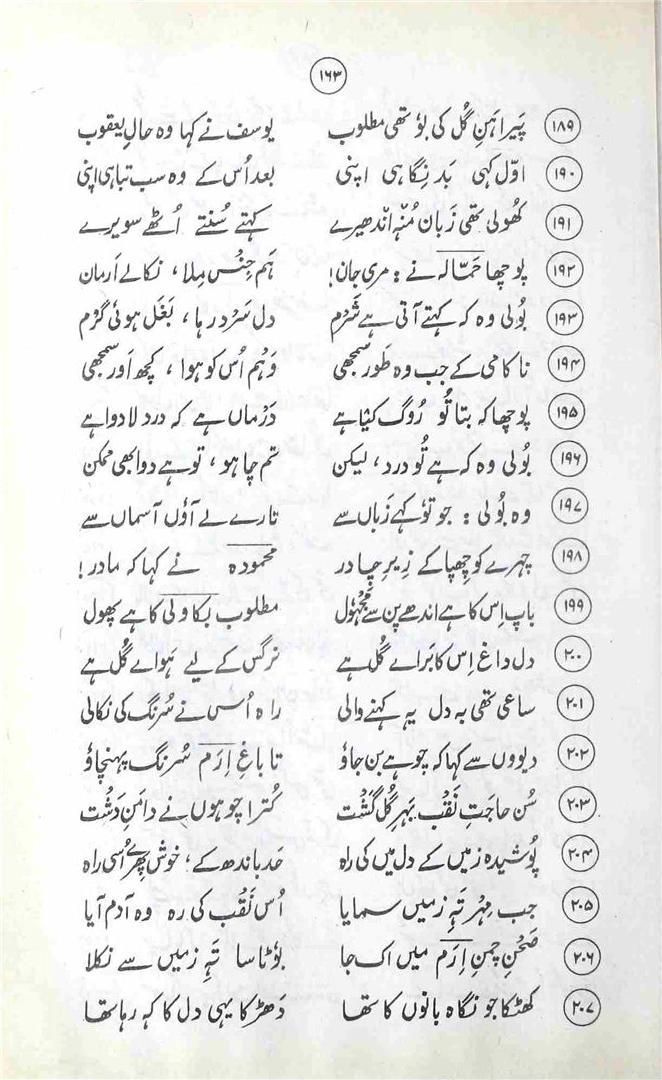 ۱۶۳
۱۸۹ پَیراہَنِ گُل کی بوٗ تھی مطلوب یوسف نے کہا وہ حالِ یعقوب
۱۹۰ اوّل کہی بَد نِگاہی اپنی بعد اُس کے وہ سب تباہی اپنی
۱۹۱ کھُولی تھی زَبان مُنہ اندھیرے کہتے سُنتے اُٹھے سویرے
۱۹۲ پوچھا حَمّالہ نے : مری جان! ہَم جِنْس مِلا ، نکالے اَرمان
۱۹۳ بُولی وہ کہ کہتے آتی ہے شَرْم دل سَرْد رہا ، بَغَل ہوئی گرْم
۱۹۴ ناکامی کے جب وہ طَور سمجھی وَہْم اُس کو ہوا ، کچھ اَور سمجھی
۱۹۵ پوچھا کہ بتا تُو رُوگ کیا ہے دَرْماں ہے کہ دردِ لادوا ہے
۱۹۶ بُولی وہ کہ ہے تُو درد ، لیکن تم چاہو ، تو ہے دوا بھی ممکن
۱۹۷ وہ بُولی : جو توٗ کہے زَباں سے تارے لے آؤں آسماں سے
۱۹۸ چہرے کو چھپا کے زیرِ چادر محمودہ نے کہا کہ مادر!
۱۹۹ باپ اِس کا ہے اندھے پن سے مجہُول مطلوب بکاولی کا ہے پھول
۲۰۰ دل داغ اِس کا براے گُل ہے نرگس کے لیے ہَواے گُل ہے
۲۰۱ ساعی تھی بہ دل یہ کہنے والی راہ اُس نے سُرنگ کی نکالی
۲۰۲ دیووں سے کہا کہ چوہے بن جاوٗ تا باغِ اِرَم سُرنگ پہنچاوٗ
۲۰۳ سُن حاجتِ نَقْب بہرِ گُل گشْت کُترا چوہوں نے دامنِ دَشْت
۲۰۴ پُوشیدہ زمیں کے دل میں کی راہ حَد باندھ کے ، خوش پھرے اُسی راہ
۲۰۵ جب مِہْر تَہِ زمیں سمایا اُس نَقْب کی رہ وہ آدم آیا
۲۰۶ صَحْنِ چمنِ اِرَم میں اک جا بوٗٹا سا تَہِ زمیں سے نکلا
۲۰۷ کھٹکا جو نگاہ بانوں کا تھا دَھڑکا یہی دل کا کہ رہا تھا